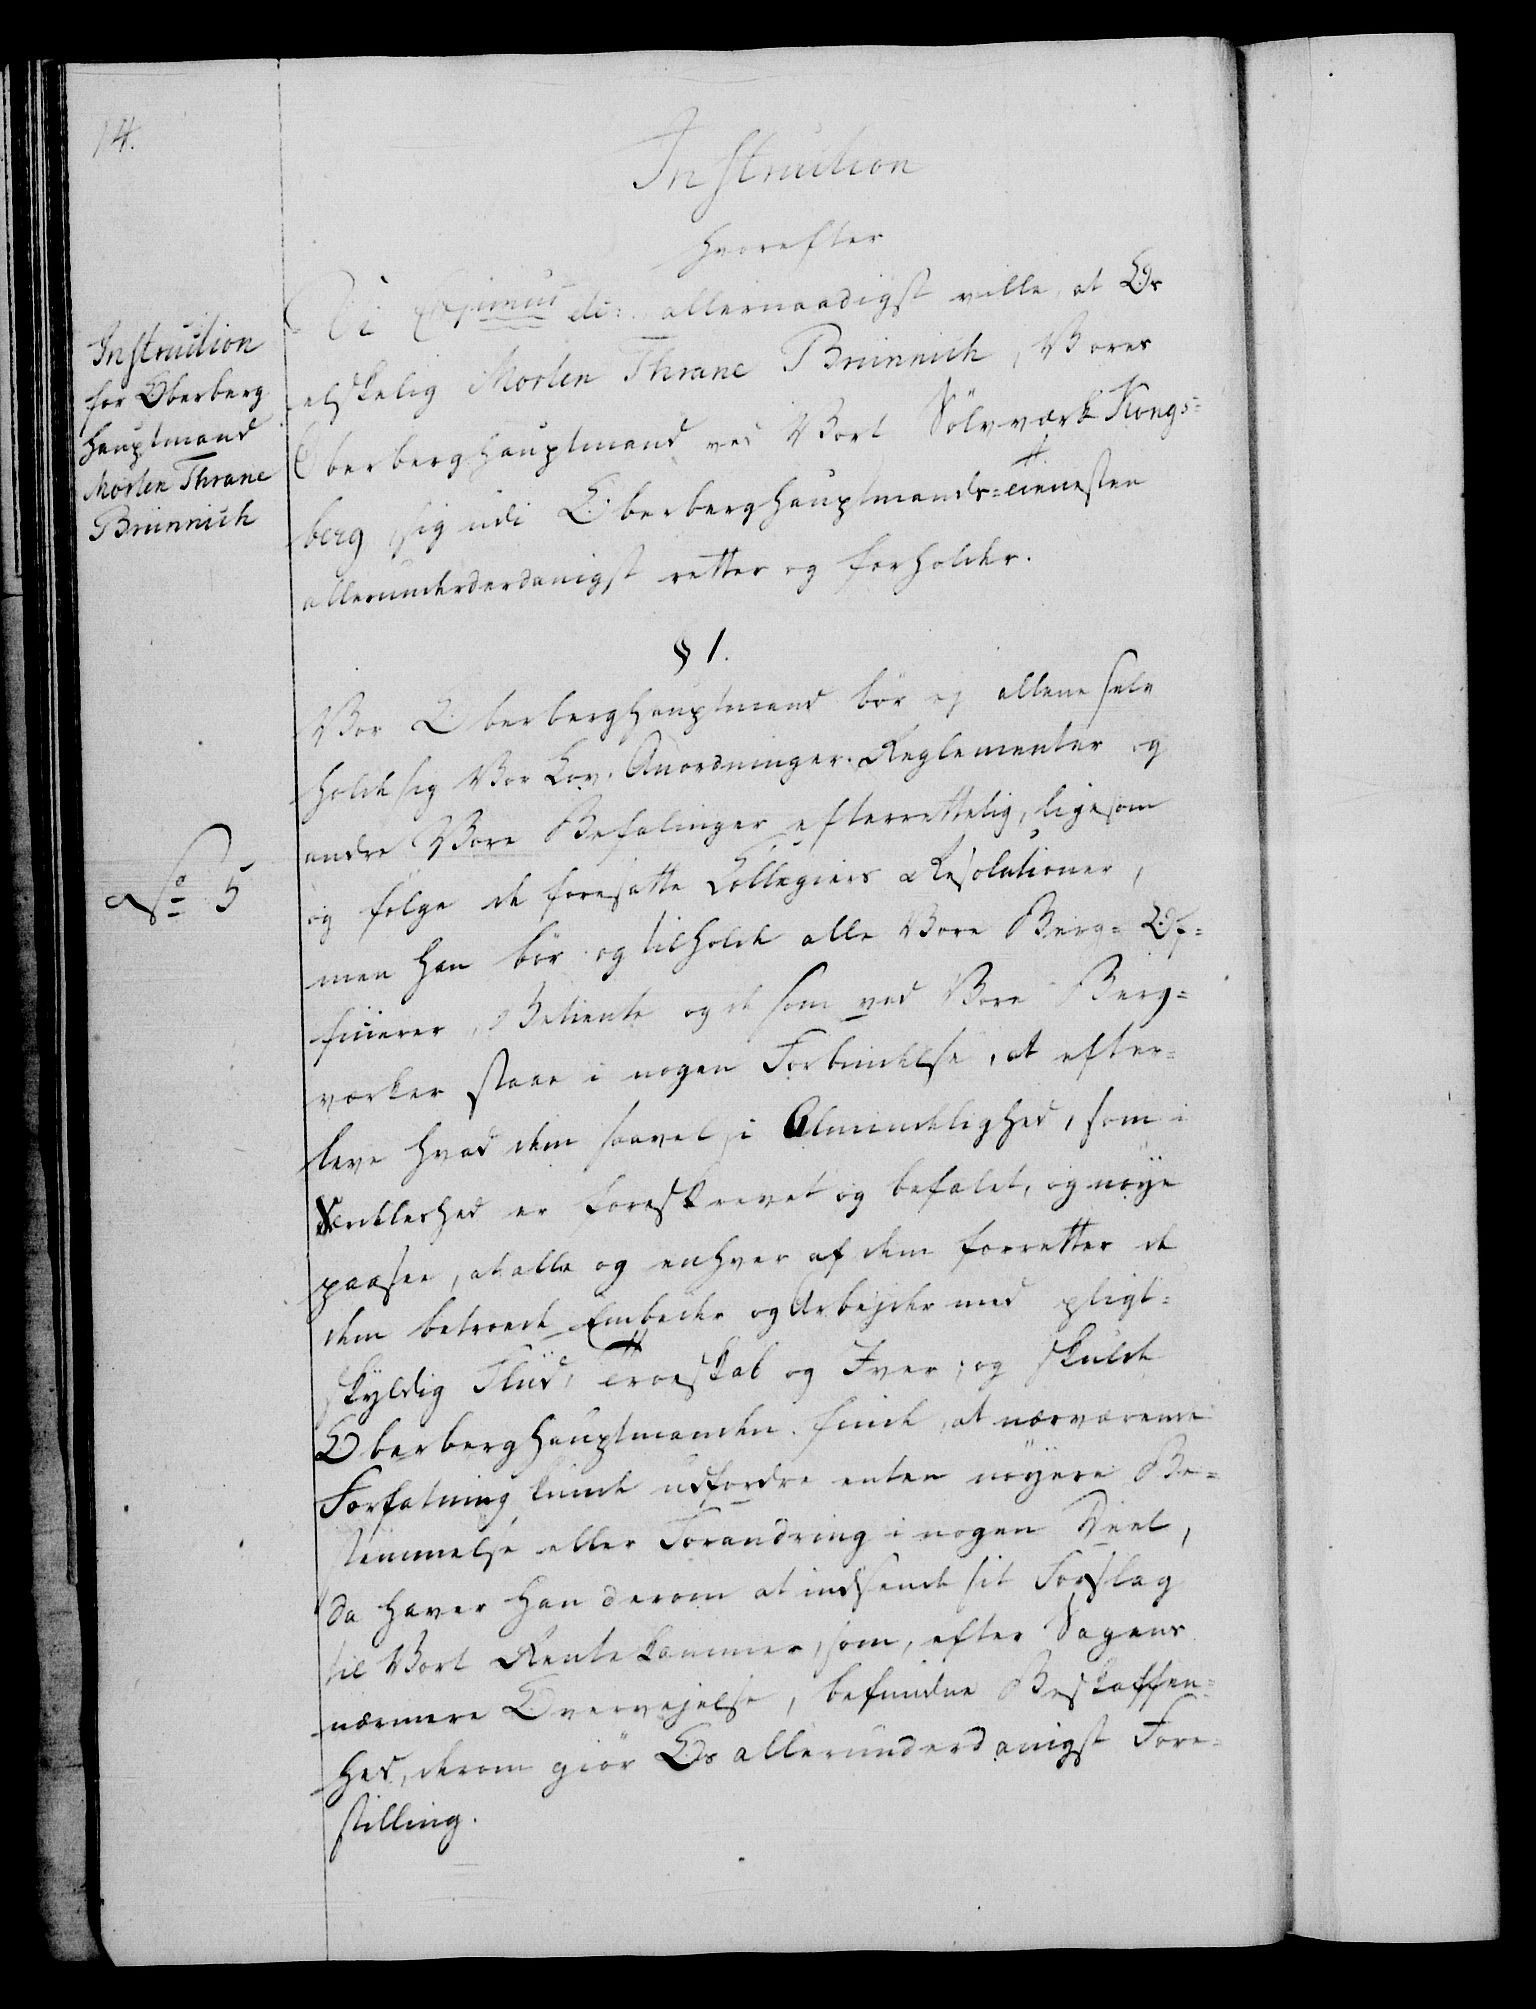 14.
Instruction
hvorefter
Vi etc: allernaadigst ville, at Os
elskelig Morten Thrane Brünnich, Vores
Oberberghauptmand ved Vort Sölvværk Kongs=
berg sig udi Oberberghauptmands=Tienesten
allerunderdanigst retter og forholder.
Instruction
for Oberberg
hauptmand
Morten Thrane
Brünnich
§ 1.
Vor Oberberghauptmand bör ej allene selv
holde sig Vor Lov, Anordninger, Reglementer og
andre Vore Befalinger efterrettelig, ligesom
og følge de foresatte Collegiers Resolutioner,
men han bör og tilholde alle Vore Berg= Of=
ficierer, Betiente og de som ved Vore Berg=
værker staae i nogen Forbindelse, at efter=
leve hvad dem saavel i Almindelighed, som i
Særdeleshed er foreskrevet og befalet, og nöye
paasee, at alle og enhver af dem forretter de
dem betroede Embeder og Arbejder med pligt=
skyldig Fliid, Troeskab og Iver; og skulde
Oberberghauptmanden finde, at nærværende
Forfatning kunde udfordre enten nöyere Be=
stemmelse eller Forandring i nogen Deel,
da haver han derom at indsende sit Forslag
til Vort Rentekammer, som, efter Sagens
nærmere Overvejelse, befundne Beskaffen=
hed, derom giör Os allerunderdanigst Fore=
stilling.
No 5